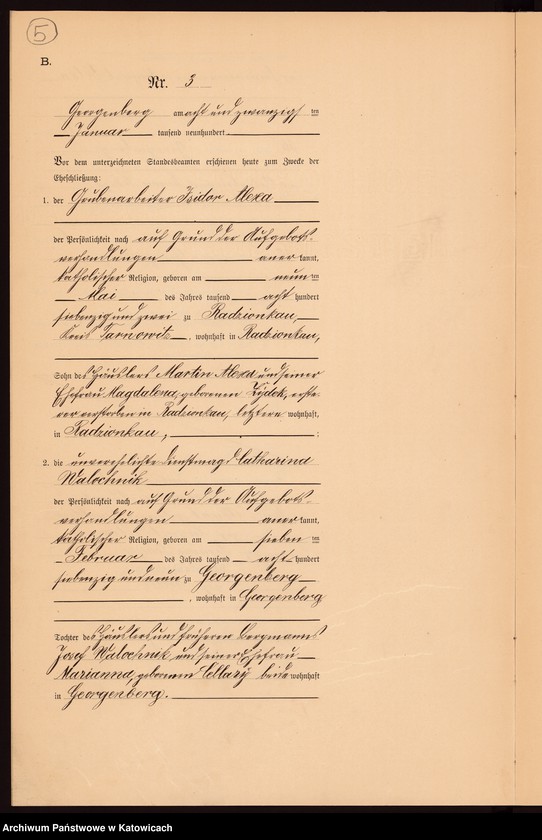 5
B.
Nr. 3
Georgenberg am acht und zwanzigsten
Januar tausend neunhundert
Vor dem unterzeichneten Standesbeamten erschienen heute zum Zwecke der
Eheschließung:
1. der Grubenarbeiter Isidor Alexa
der Persönlichkeit nach auf Grund der Aufgebots-
verhandlungen aner kannt,
katholischer Religion, geboren am neunten
Mai des Jahres tausend acht hundert
siebenzig und zwei zu Radzionkau,
Kreis Tarnowitz, wohnhaft in Radzionkau,
Sohn des Häuslers Martin Alexa und seiner
Ehefrau Magdalena, geborenen Lydek, erste-
rer verstorben in Radzionkau, letztere wohnhaft,
in Radzionkau, ;
2. die unverehelichte Dienstmagd Catharina
Walochnik
der Persönlichkeit nach auf Grund der Aufgebots-
verhandlungen aner kannt,
katholischer Religion, geboren am sieben ten
Februar des Jahres tausend acht hundert
siebenzig und neun zu Georgenberg
, wohnhaft in Georgenberg
Tochter des Häuslers und früheren Bergmanns
Josef Walochnik und seiner Ehefrau
Marianna, geborenen Cellary beide wohnhaft
in Georgenberg.
Archiwum Państwowe w Katowicach